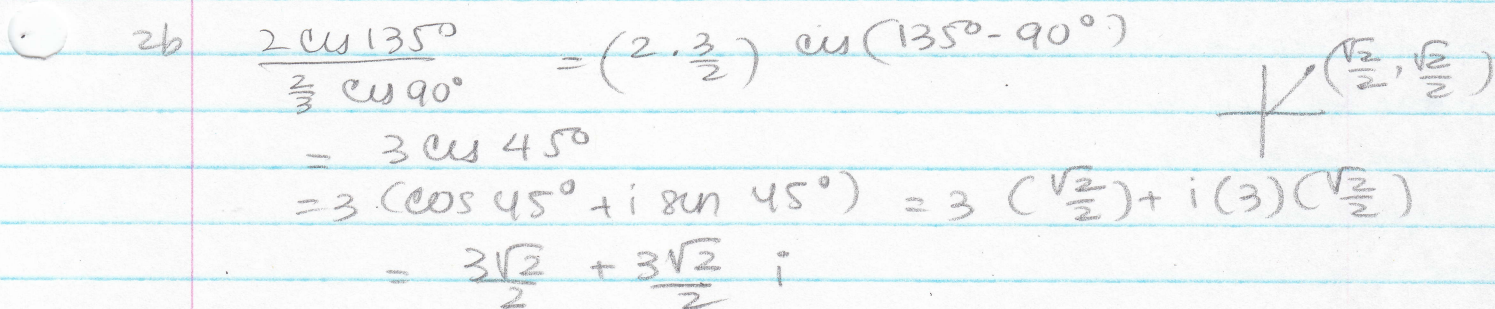 2b 2 cis 135° / 2/3 cis 90° = (2 · 3/2) cis (135° - 90°) (√2/2, √2/2)
= 3 cis 45°
= 3 (cos 45° + i sin 45°) = 3 (√2/2) + i (3) (√2/2)
= 3√2/2 + 3√2/2 i